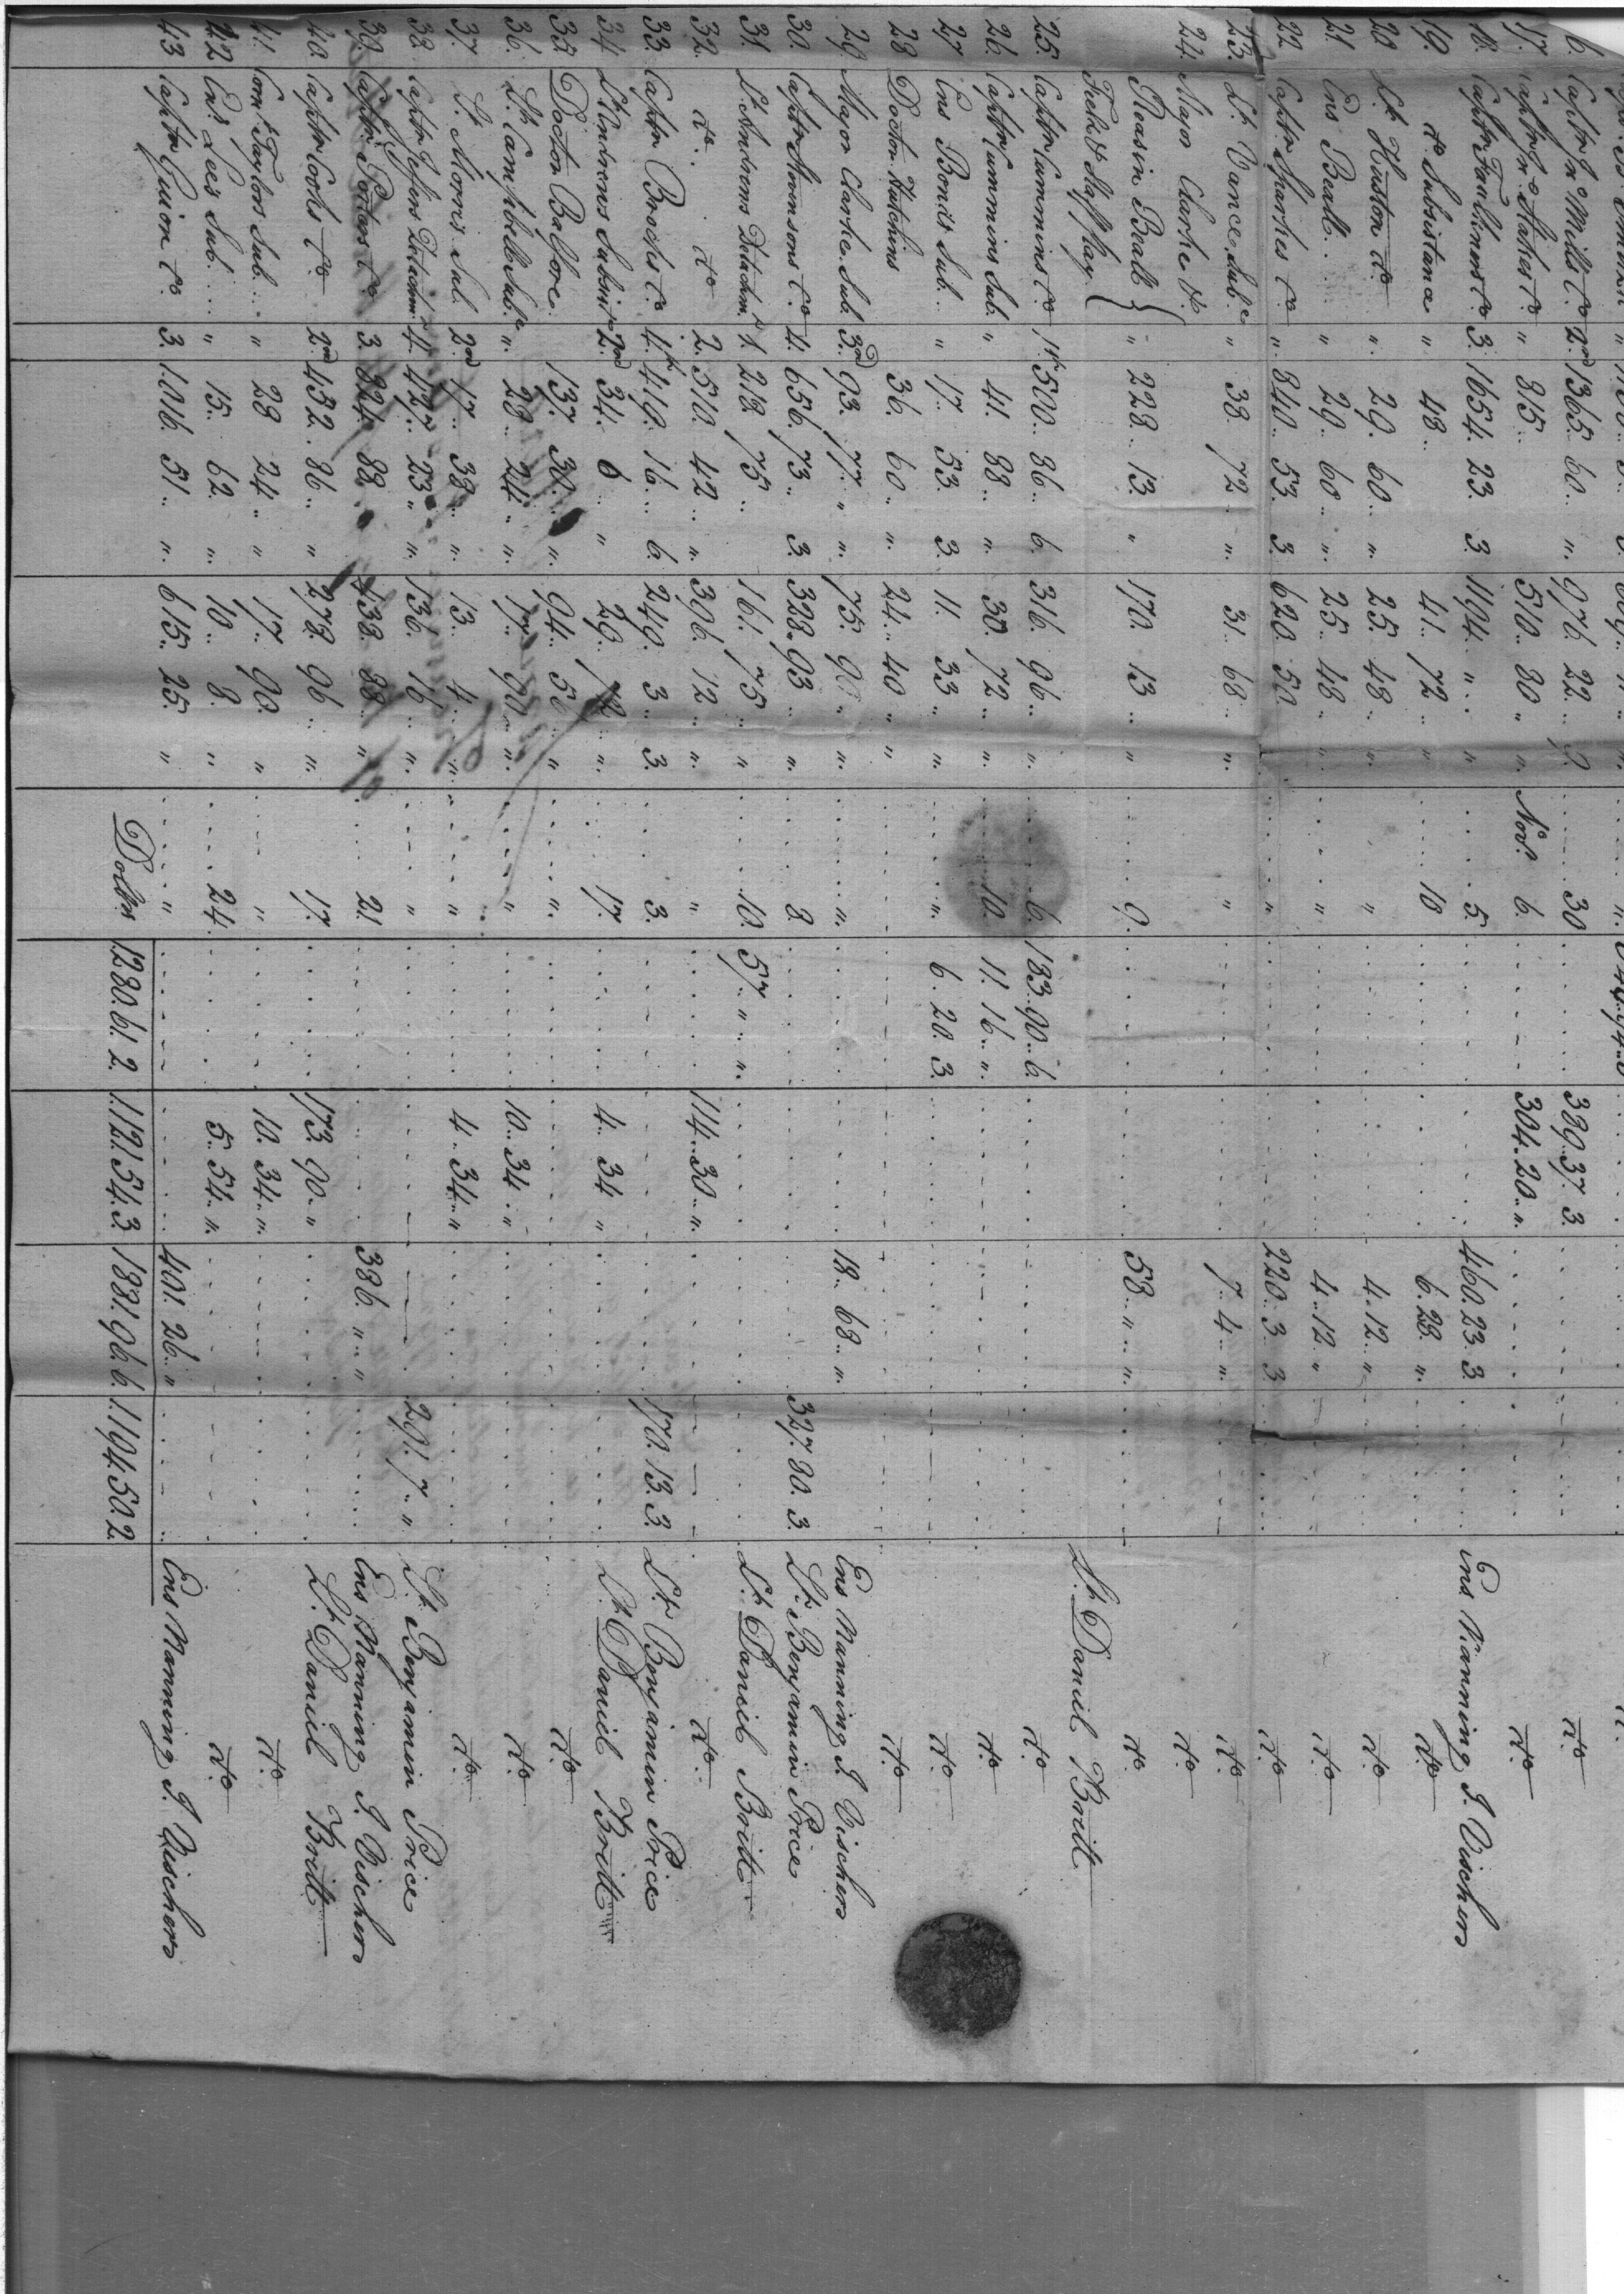 6. Captn Jn. Mills Co. 2nd 1365. 60 .. " .. 976. 22 .. 9. 30 389..37. 3. do
17. Captn Jn. Co. " 815 .. 510.. 80 .. " .. Novr. 6. 304. 20 .. " . do
18. Captn Faulkners Co. 3. 1654. 23. 3. 1194. " .. " 5. 460. 23. 3 Ens Manning G. Vischers
19. do Subsistance " 48 .. 41.. 72 .. " 10 6. 28. " . do
20 Lt. Huston do " . 29. 60 .. " 25. 48 .. " " 4. 12 .. " do
21. Ens Beall .. " 29.. 60 .. " . 25.. 48 .. " .. " 4..12 .. " do
22. Captn Sparkes Co ". 840.. 53. 3. 620. 50 " 220. 3. 3. do
23. Lt. Vance Sub.e " 38. 72 .. " . 31. 68 .. " . " 7. 4 .. " . do
24. Major Clarke &. do
Reasin Beall } " 228.. 13. " 170. 13 .. " 9. 58 .. " .. " . do
Field & Staff pay Lt. Daniel Britt
25. Captn Cummins Co 1st 500.. 86. 6. 316. 96 .. " . 6. 183. 90.. 6. do
26. Captn Cummins Sub. " 41. 88 .. " . 30. 72 .. " . 10. 11. 16 .. " . do
27. Ens Bonds Sub. " 17.. 53. 3. 11. 33 .. " . " . 6. 20. 3. do
28. Doctor Hutchins 36. 60 .. " . 24.. 40 .. " do
29. Major Clarke Sub. 3d. 93. 77. " .. " . 75. 90 .. " " . 18.. 68 .. " . Ens Manning G. Vischers
30. Captn Co. 4. 656. 73 .. 3. 328. 93 .. " . 8 327. 80. 3. Lt. Benjamin Price
31. Lt. Andrews Detachmt 1. 218. 75 .. 161. 75 .. " 10. 57 .. " .. " . Lt. Daniel Britt
32. do. do 2. 510. 42 .. " . 396. 12 .. " . " 114..30 .. " . do
33. Captn Brocks Co 4th 419. 16 .. 6. 249. 3 .. 3. 3. 170. 13. 3. Lt. Benjamin Price
34. Lt. Andrews Subsis. 2nd 34. 6 .. " 29. 72 .. " . 17. 4.. 34 " Lt. Daniel Britt
35 Doctor Balfore 137. 30 .. " . 94. 50 .. " " . do
36. Lt. Campbells Sub.e " . 28.. 24 .. " .. 17. 90 .. " . " 10.. 34 .. " do
37. Lt. Morris Sub. 2nd 17.. 38 .. " . 13.. 4 .. " .. " 4.. 34 .. " do
38. Captn Detachmt 4. 427. 23 " .. " . 136. 16 .. " . " 291. 7 .. " Lt. Benjamin Price
39. Captn Porters Co 3. 824. 88 438. 88 .. " 21 386. " .. " Ens Manning G. Vischers
40. Captn Cooks Co 2nd 452. 86 .. " 278 96 .. " . 17. 173. 90 .. " Lt. Daniel Britt
41. Corn. Taylors Sub. .. " 28 24 .. " 17.. 90. " " 10. 34 .. " . do
42 Ens. Lees Sub. .. " 15. 62 .. " . 10.. 8. " 24. 5.. 54 .. " . do
43 Captn Guion Co. 3. 1016. 51 .. " . 615.. 25. " " 401. 26 .. " Ens Manning G. Vischers
Dollrs 1280. 61. 2. 1121. 54. 3. 1881. 96. 6. 1194. 50. 2